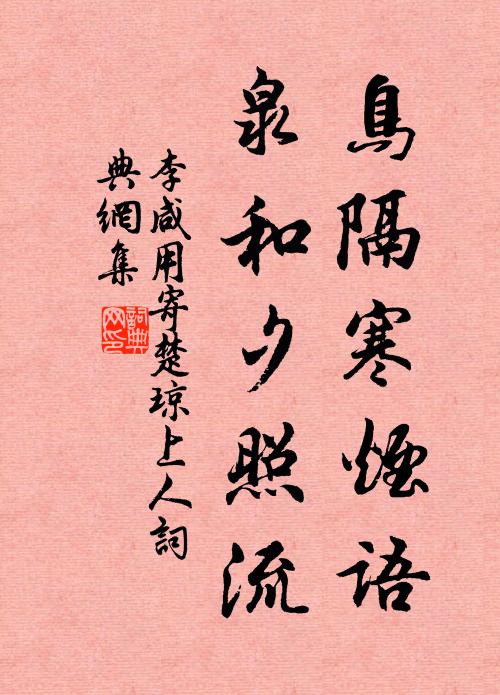 鳥隔寒煙語
泉和夕照流
李咸用寄楚琼上人詞
典網集
詞典网印